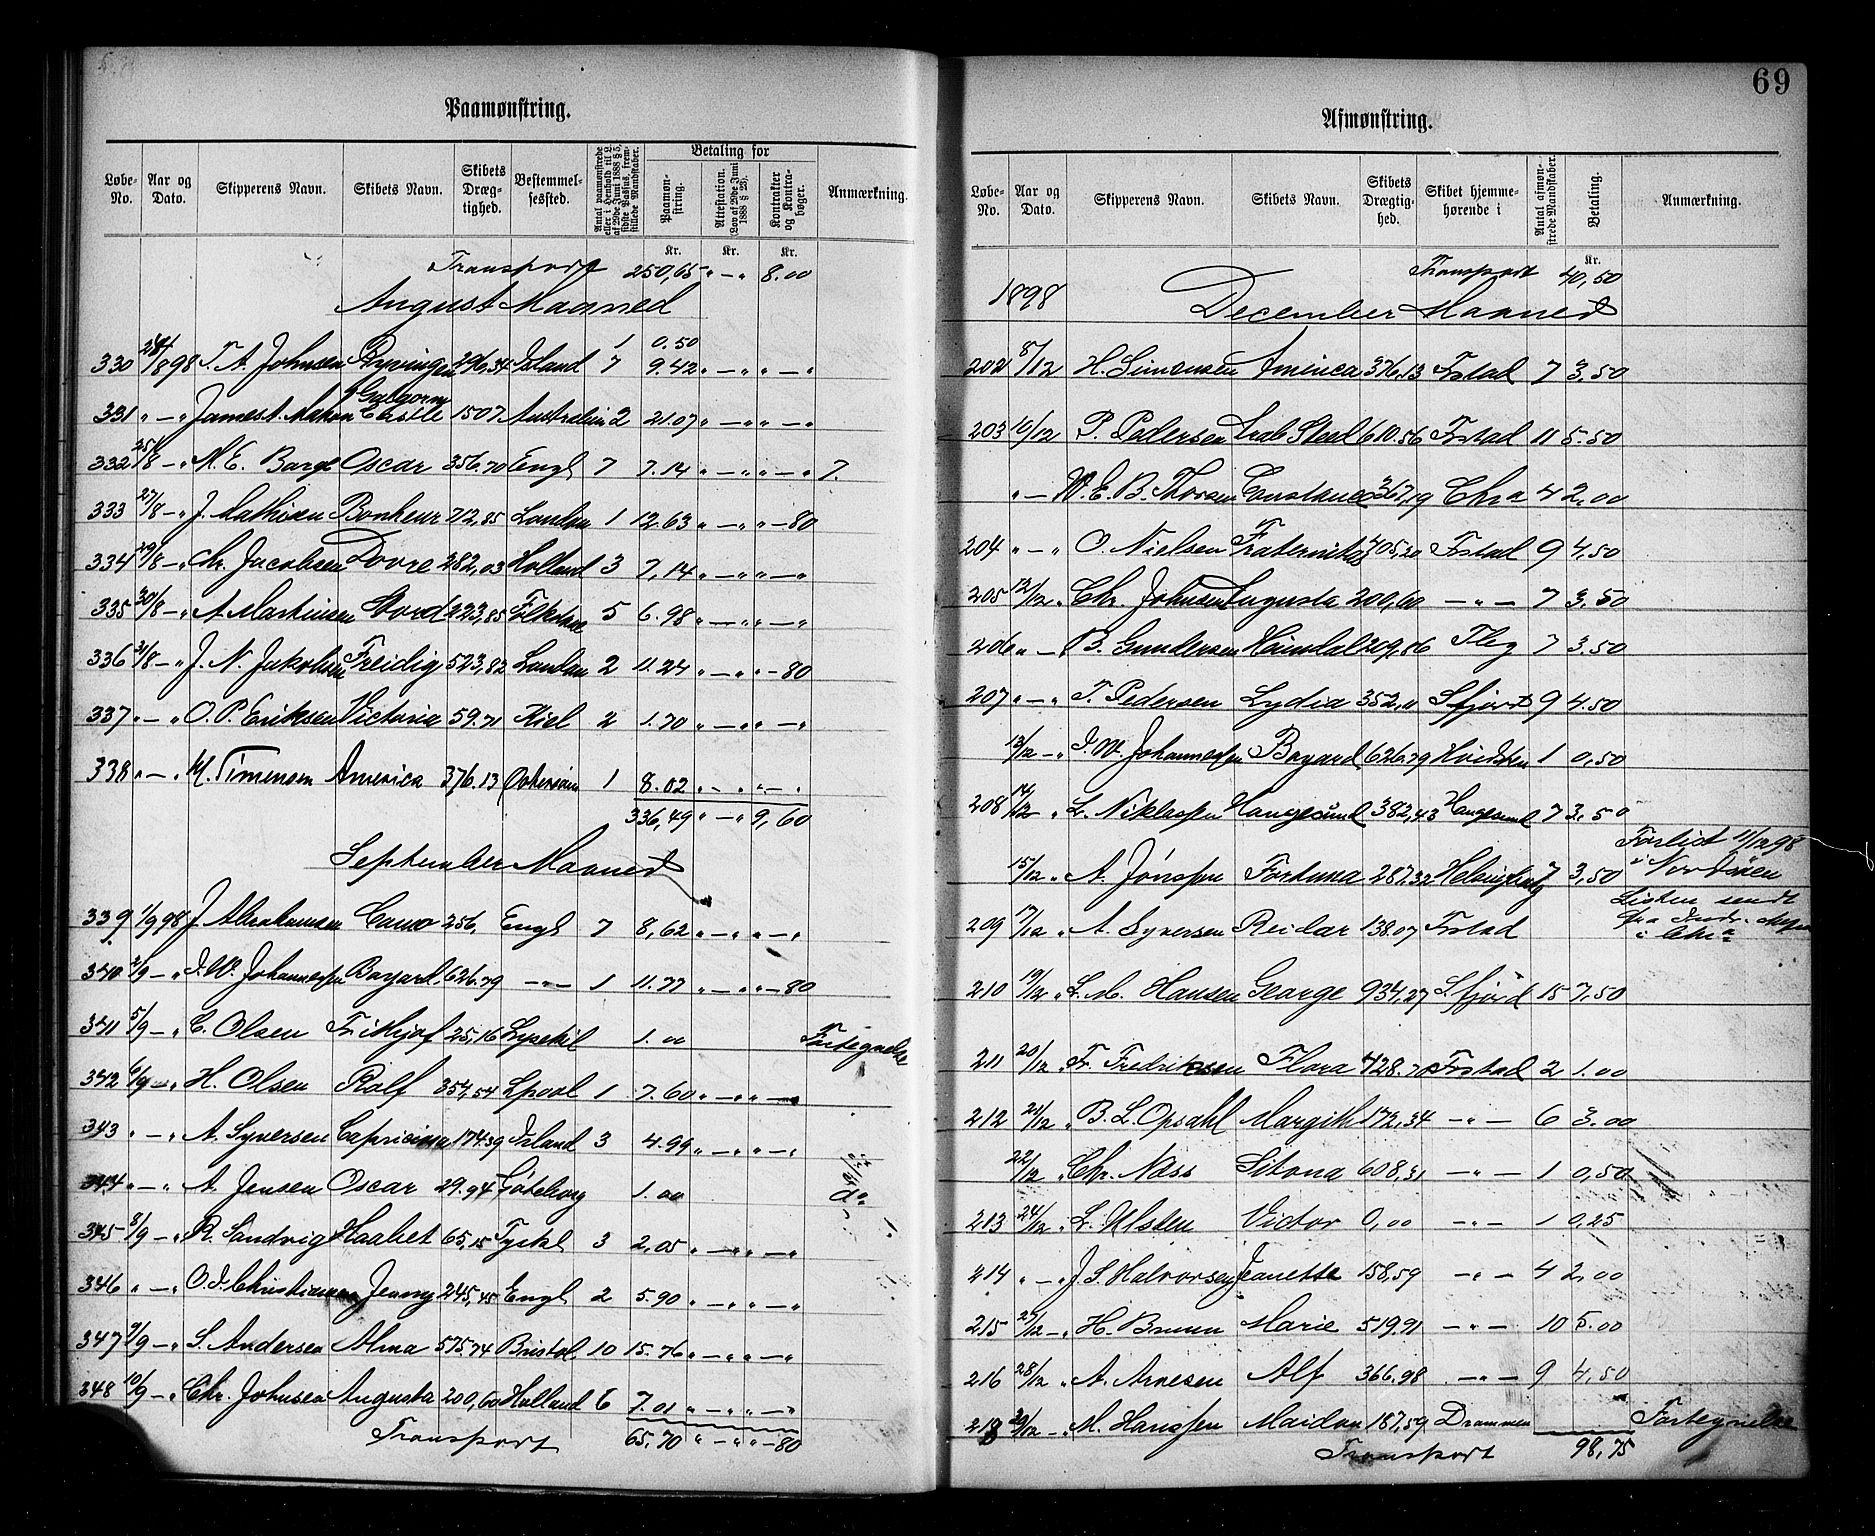 Paamønstring.
Løbe-No. Aar og Dato. Skipperens Navn. Skibets Navn. Skibets Dræg-tighed. Bestemmel-sessted. Antal paamønstrede eller i Henhold til L. af 29de Juni 1888 § 5, sidste Passus, frem-stillede Mandskaber. Betaling for Paamøn-string. Attestation. (Lov af 29de Juni 1888 § 25). Kontrakter og Kontra-bøger. Anmærkning.
Kr. Kr. Kr.
Transport 250,65 " — " 8.00
August Maaned
1 0.50
330 24/8 98 T. A. Johnsen Ryvingen 296.34 Island 7 9.42 " — " " — "
331 " — " James A. Mahon Galgorm Castle 1507 Australien 2 21.07 " — " " — "
332 25/8 — " N. E. Borge Oscar 356.70 Engl 7 7.14 " — " " — " 7.
333 27/8 — " J. Mathisen Bonheur 712,85 London 1 12.63 " — " " — 80
334 29/8 — " Chr. Jacobsen Dovre 282,03 Holland 3 7,14 " — " " — "
335 30/8 — " A. Martinsen Stord 223,85 5 6.98 " — " " — "
336 31/8 — " J. N. Jakobsen Freidig 523,83 London 2 11.24 " — " " — 80
337 " — " O. P. Eriksen Victoria 59.71 Kiel 2 1.70 " — " " — "
338 " — " H. Simensen America 376.13 1 8.02 " — " " — "
336,49 " — " 9,60
September Maaned
339 1/9 98 J. Abrahamsen 256, Engl 7 8,62 " — " " — "
340 2/9 — " J. W. Johannessen Bayard 626.79 — " — 1 11.77 " — " " — 80
341 5/9 — " C. Olsen Frithjof 25,16 Lysekil 1.00 Fortegnelse
342 6/9 — " H. Olsen Rolf 354,54 Lpool 1 7.60 " — " " — "
343 " — " A. Syversen Capricina 174.39 Island 3 4.99 " — " " — "
344 " — " A. Jensen Oscar 29.94 Göteborg 1.00 do
345 8/9 — " R. Sandvig Haabet 65,15 Tyskl 3 2,05 " — " " — "
346 " — " O. J. Christiansen Jenny 245,45 Engl 2 5.90 " — " " — "
347 9/9 — " S. Andersen Alma 575.74 Bristol 10 15.76 " — " " — "
348 10/9 — " Chr. Johnsen Augusta 200,60 Holland 6 7.01 " — " " — "
Transport 65.70 " — " " — 80
69
Afmønstring.
Løbe-No. Aar og Dato. Skipperens Navn. Skibets Navn. Skibets Drægtig-hed. Skibet hjemme-hørende i Antal afmøn-strede Mandskaber. Betaling. Anmærkning.
Kr.
Transport 40,50
1898 December Maaned
202 8/12 H. Simensen America 376,13 Fstad 7 3,50
203 10/12 P. Pedersen 610.56 Fstad 11 5.50
" — W. E. B. Thorsen Constance 367,19 Chra 4 2,00
204 " — " O. Nielsen Fraternitas 405,20 Fstad 9 4.50
205 12/12 " Chr. Johnsen Augusta 200,60 — " — 7 3,50
206 " — B. Gundersen Heimdal 209,86 7 3.50
207 " — " T. Pedersen Lydia 352,11 Sfjord 9 4.50
13/12 — " J. W. Johannessen Bayard 626.79 1 0,50
208 14/12 " L. Niklassen Haugesund 382,43 Haugesund 7 3,50
15/12 — " A. Jönsson Fortuna 287.32 Helsingborg 7 3,50 Forlist 11/12 98
i Nordsöen
209 17/12 " A. Syversen Reidar 138.07 Fstad Listen sendt
fra
i Chra
210 19/12 " L. M. Hansen George 934,27 Sfjord 15 7,50
211 20/12 " Fr. Fredriksen Flora 428.70 Fstad 2 1.00
212 21/12 " B. L. Opsahl Margith 172,34 — " — 6 3.00
22/12 " Chr. Næss Sitona 608,31 — " — 1 0,50
213 24/12 " L. Ulsten Victor 0,00 — " — 1 0,25
214 " — " J. S. Halvorsen Jeanette 158,59 — " — 4 2,00
215 27/12 — " H. Bruun Marie 519.91 — " — 10 5.00
216 28/12 " A. Arnesen Alf 366.98 — " — 9 4,50
218 29/12 — " M. Hanssen 187,59 Drammen Fortegnelse
Transport 98,75